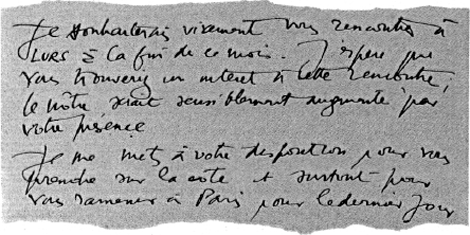 Je souhaiterais vivement vous rencontrer à
LURS à la fin de ce mois. J'espère que
vous trouverez un intérêt à cette rencontre,
le nôtre serait sensiblement augmenté par
votre présence
Je me mets à votre disposition pour vous
prendre sur la côte et surtout pour
vous ramener à Paris pour le dernier jour